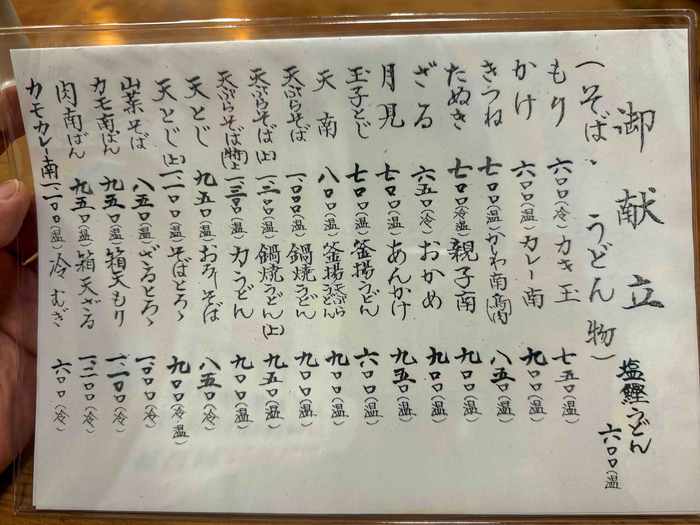 御献立
塩鰹うどん 六〇〇(温)
(そば、うどん物)
もり 六〇〇(冷) カキ玉 七五〇(温)
かけ 六〇〇(温) カレー南 九〇〇(温)
きつね 七〇〇(温) かしわ南(鶏肉) 八五〇(温)
たぬき 七〇〇(冷温) 親子南 九〇〇(温)
ざる 六五〇(冷) おかめ 九〇〇(温)
月見 七〇〇(温) あんかけ 九五〇(温)
玉子とじ 七〇〇(温) 釜揚うどん 六〇〇(温)
天南 八〇〇(温) 釜揚天ぷらうどん 九〇〇(温)
天ぷらそば 一、〇〇〇(温) 鍋焼うどん 九〇〇(温)
天ぷらそば(上) (温) 鍋焼うどん(上) 九五〇(温)
天ぷらそば(特上) 一、三〇〇(温) 力うどん 九〇〇(温)
天とじ 九五〇(温) おろしそば 八五〇(冷)
天とじ(上) 一、一〇〇(温) そばとろゝ 九〇〇(冷温)
山菜そば 八五〇(温) ざるとろゝ 一、〇〇〇(冷)
カモ南ばん 九五〇(温) 箱天もり 一、一〇〇(冷)
肉南ばん 九五〇(温) 箱天ざる 一、二〇〇(冷)
カモカレー南 一、一〇〇(温) 冷むぎ 六〇〇(冷)